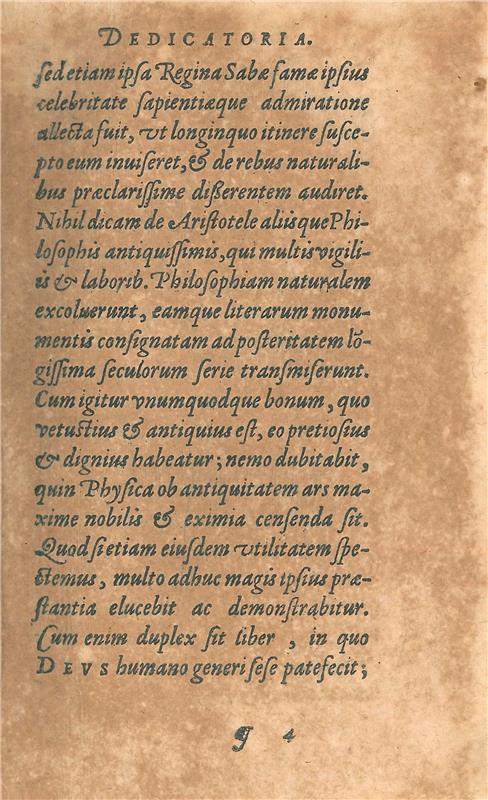 DEDICATORIA.
sed etiam ipsa Regina Sabæ famæ ipsius
celebritate sapientiæque admiratione
allecta fuit, vt longinquo itinere susce-
pto eum inuiseret, & de rebus naturali-
bus præclarissime disserentem audiret.
Nihil dicam de Aristotele aliisque Phi-
losophis antiquissimis, qui multis vigili-
is & laborib. Philosophiam naturalem
excoluerunt, eamque literarum monu-
mentis consignatam ad posteritatem lō-
gissima seculorum serie transmiserunt.
Cum igitur vnumquodque bonum, quo
vetustius & antiquius est, eo pretiosius
& dignius habeatur; nemo dubitabit,
quin Physica ob antiquitatem ars ma-
xime nobilis & eximia censenda sit.
Quod si etiam eiusdem vtilitatem spe-
ctemus, multo adhuc magis ipsius præ-
stantia elucebit ac demonstrabitur.
Cum enim duplex sit liber , in quo
DEVS humano generi sese patefecit;
g 4